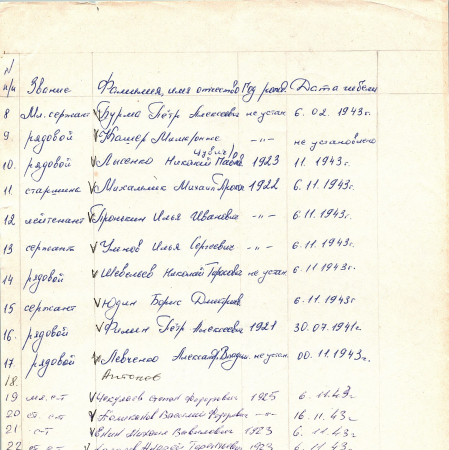 N
п/п Звание Фамилия, имя отчество Год рожд. Дата гибели
8 Мл. сержант √ Бурма Пётр Алексеевич не устан 6.02.1943г.
9 рядовой √ -"- не установлено
10. рядовой √ Лысенко Николай 1923 11.1943г.
11 старшина √ Михаил 1922 6.11.1943г.
12 лейтенант √ Пронькин Илья Иванович -"- 6.11.1943г.
13 сержант √ Умнов Илья Сергеевич -"- 6.11.1943г.
14 рядовой √ Шевелев Николай не устан 6.11.1943г
15 сержант √ Юдин Борис Дмитриев 6.11.1943г
16. рядовой √ Филин Пётр Алексеевич 1921 30.07.1941г.
17. рядовой √ Левченко Александр Владим. не устан 00.11.1943г.
18. Антонов
19 мл. с-т √ Степан Федорович 1925 6.11.43г
20 ст. с-т √ Василий Федорович -"- 16.11.43г
21 -"- с-т √ Енин Михаил 1923 6.11.43г
22 √ 1923 6.11.43г